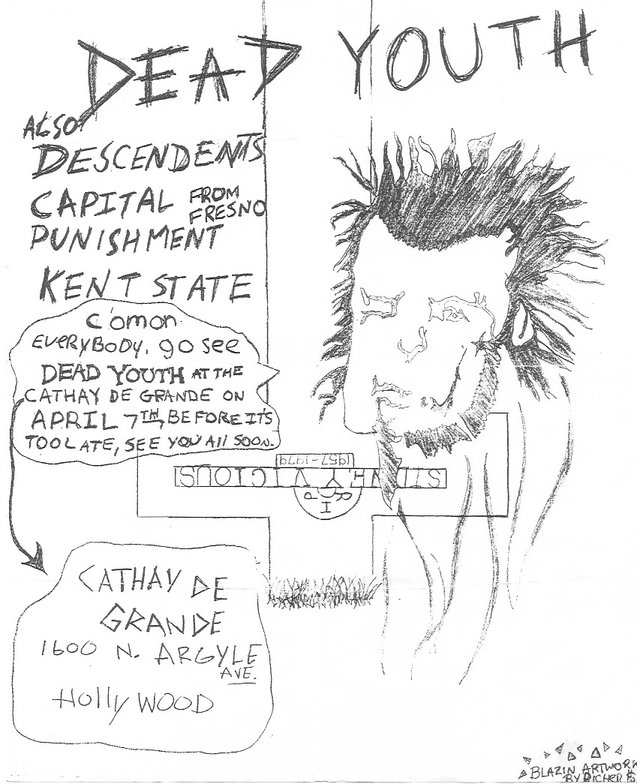 DEAD YOUTH
ALSO
DESCENDENTS
CAPITAL FROM FRESNO
PUNISHMENT
KENT STATE
C'omon
EVERYBODY, go see
DEAD YOUTH AT THE
CATHAY DE GRANDE ON
APRIL 7TH, BEFORE IT'S
TOO LATE, SEE YOU All SOON.
1957-1979
SIDNEY VICIOUS
RIP
CATHAY DE
GRANDE
1600 N. ARGYLE
AVE.
Holly WOOD
BLAZIN ARTWORK
BY